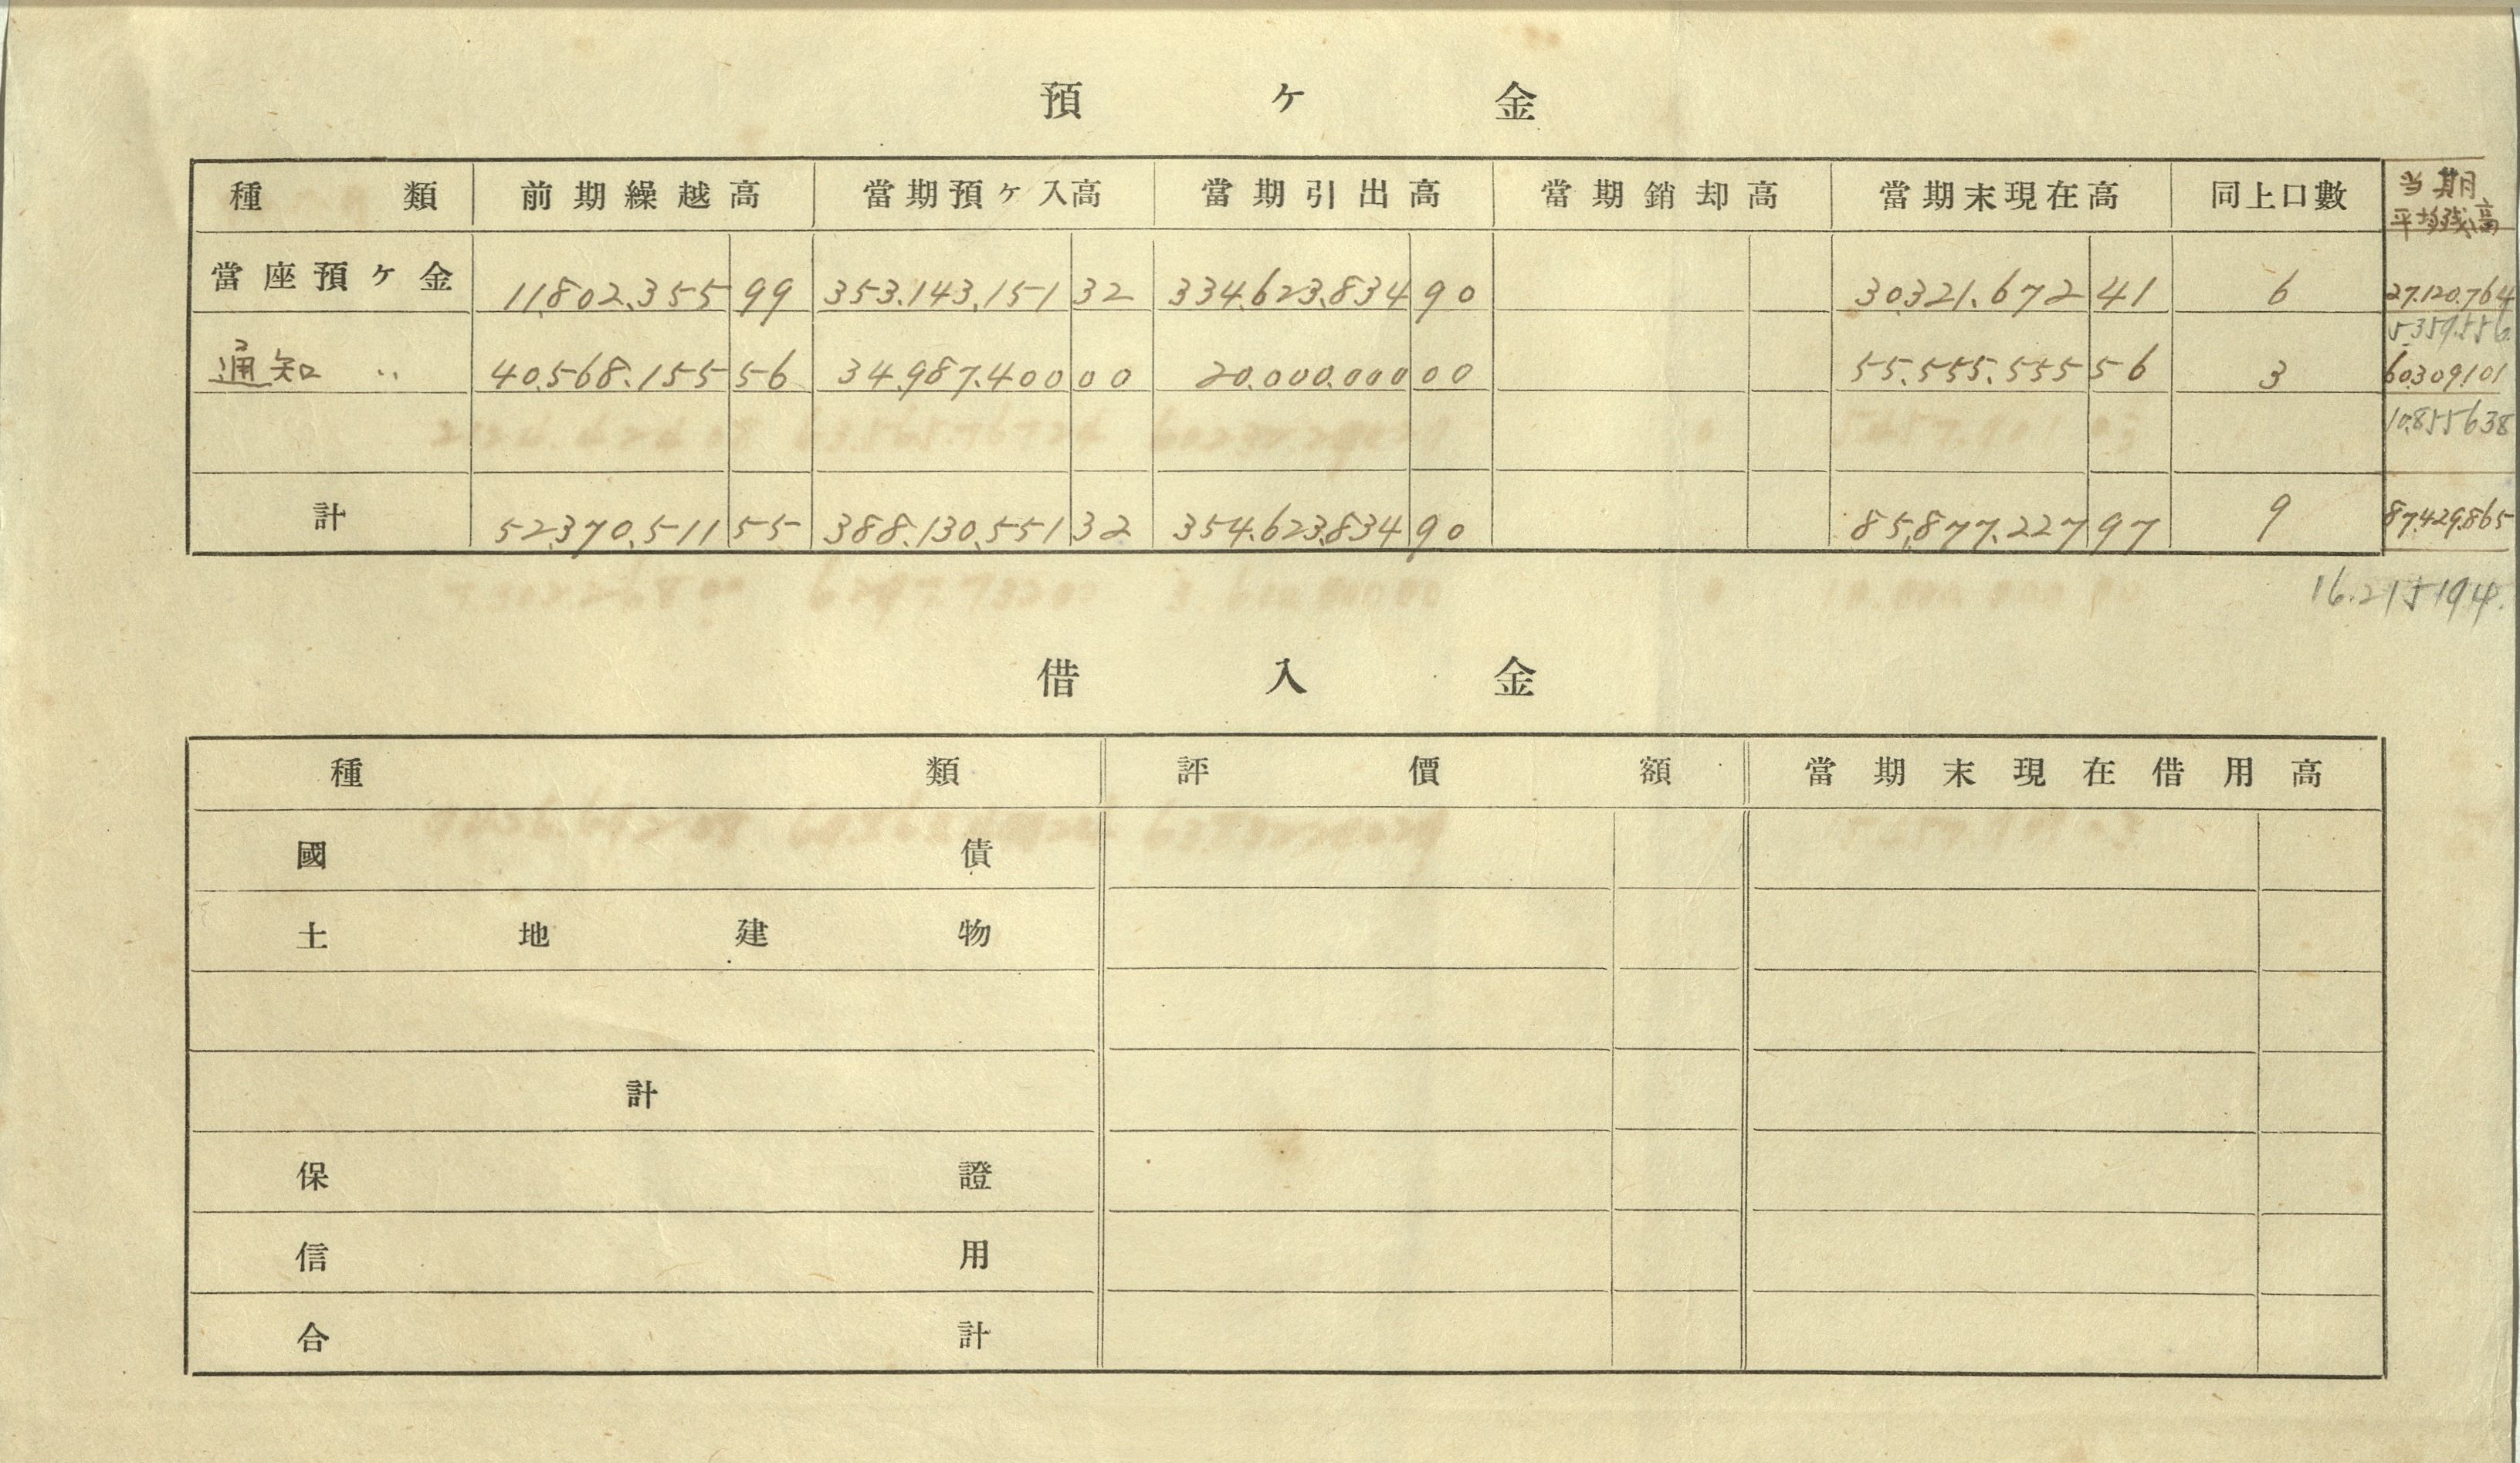 預ヶ金
種類 前期繰越高 當期預ヶ入高 當期引出高 當期銷却高 當期末現在高 同上口數 当期
平均残高
當座預ヶ金 11,802,355 99 353,143,151 32 334,623,834 90 30,321,672 41 6 27,120,764
5,359,556
通知 〃 40,568,155 56 34,987,400 00 20,000,000 00 55,555,555 56 3 60,309,101
10,855,638
計 52,370,511 55 388,130,551 32 354,623,834 90 85,877,227 97 9 87,429,865
16.215194.
借入金
種類 評價額 當期末現在借用高
國債
土地建物
計
保證
信用
合計